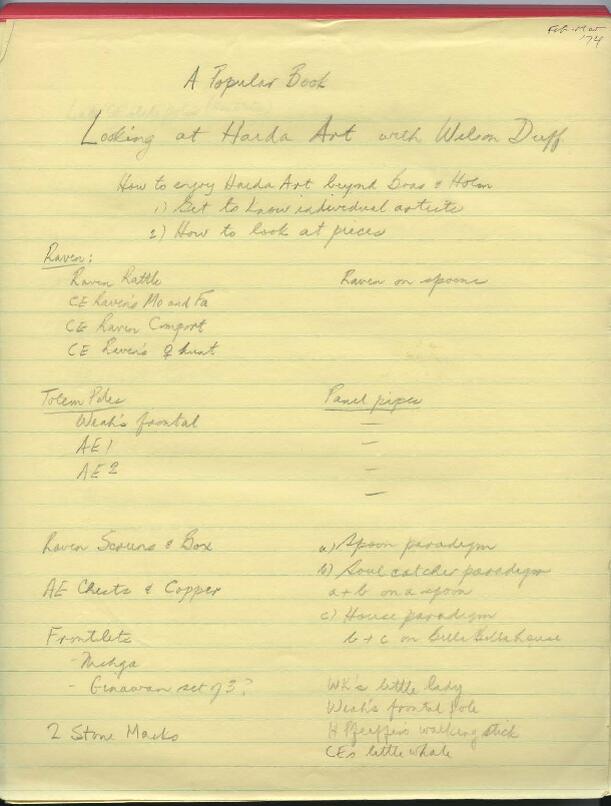 Feb-Mar
'74
A Popular Book
Looking at Haida Art with Wilson Duff
How to enjoy Haida Art beyond Boas & Holm
1) Get to know individual artists
2) How to look at pieces
Raven:
Raven Rattle
Raven on spoons
CE Raven's Mo and Fa
CE Raven Comport
CE Raven's ♀ hunt
Totem Poles
Panel pipes
Weah's frontal
—
AE 1
—
AE 2
—
—
Raven Screens & Box
a) Spoon paradigm
b) Soul catcher paradigm
AE Chests & Copper
a + b on a spoon
c) House paradigm
Frontlets
b + c on Bella Bella house
- Nishga
- Ginawan set of 3?
WK's little lady
Weah's frontal pole
2 Stone Masks
H Pfeiffer's walking stick
CEs little whale